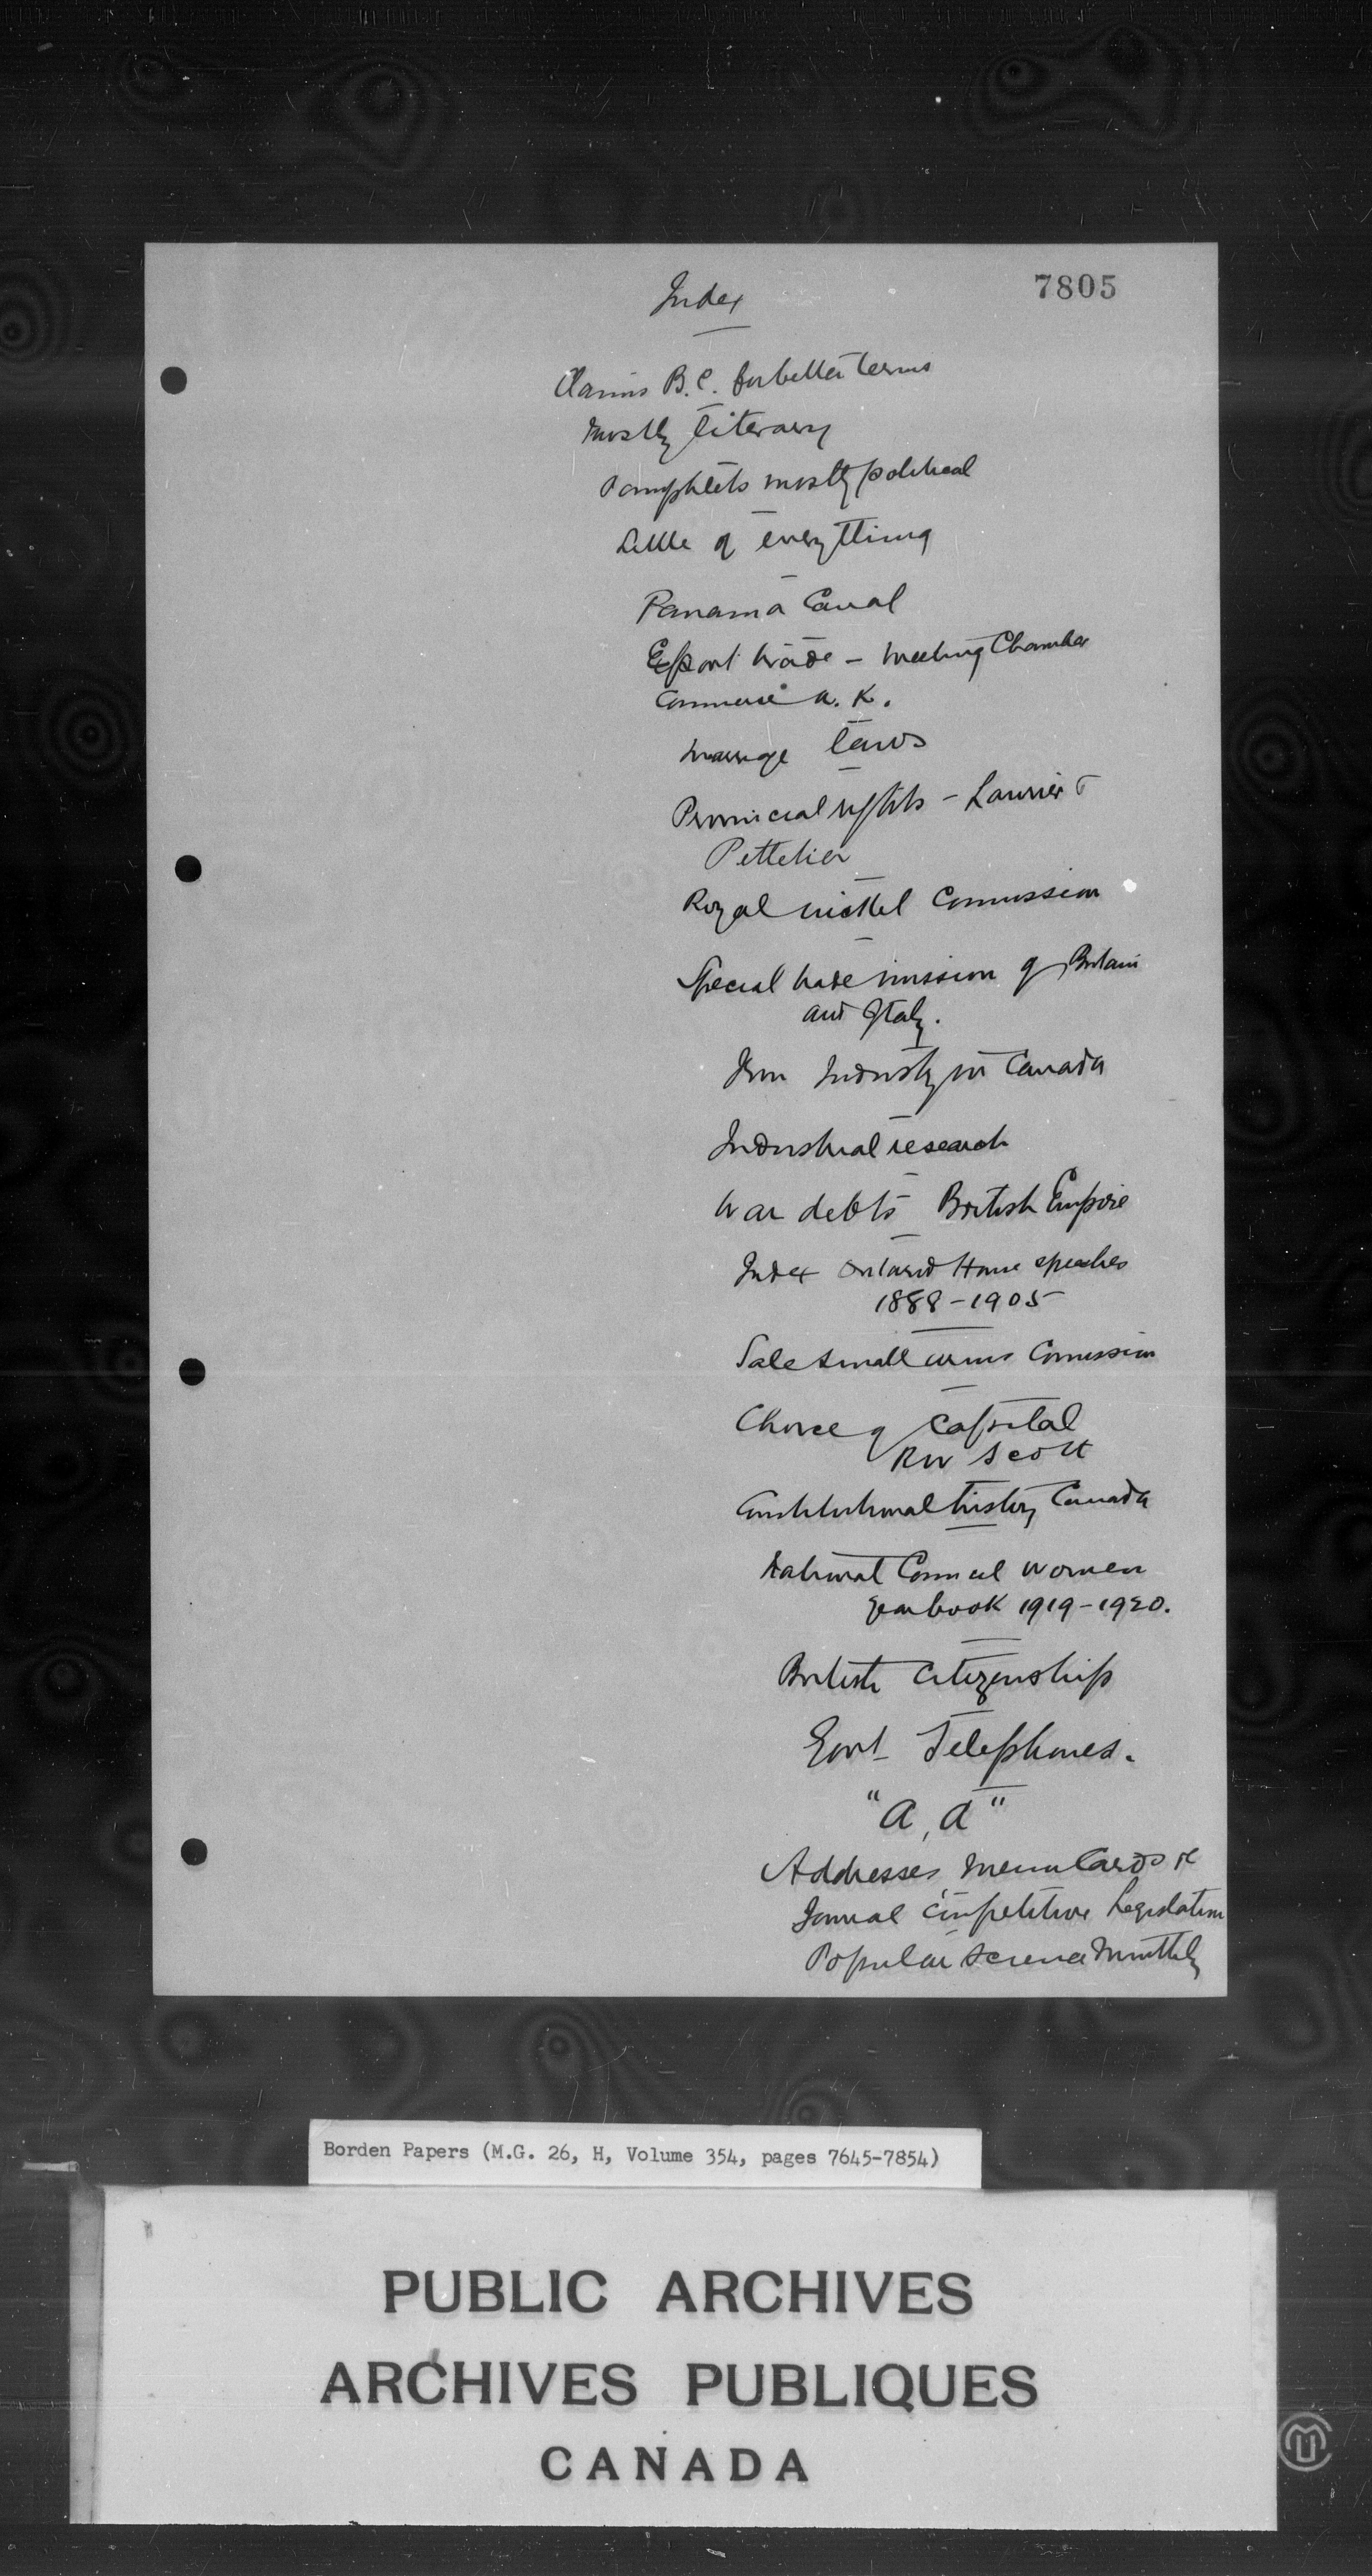 7805
Index
Claims B.C. for better terms
Mostly literary
Pamphlets mostly political
Little of everything
Panama Canal
Export trade - meeting Chamber
Commerce U.K.
Marriage laws
Provincial rights - Laurier &
Pettelier
Royal nickel Commission
Special trade mission of Britain
and Italy.
Iron Industry in Canada
Industrial research
War debts British Empire
Index Ontario House speeches
1888-1905
Sale small arms Commission
Choice of Capital
RW Scott
Constitutional history Canada
National Council Women
yearbook 1919-1920.
British Citizenship
Govt Telephones.
"a, a"
Addresses, Menu Cards &c
Journal Competitive Legislation
Popular Science Monthly
Borden Papers (M.G. 26, H, Volume 354, pages 7645-7854)
PUBLIC ARCHIVES
ARCHIVES PUBLIQUES
CANADA